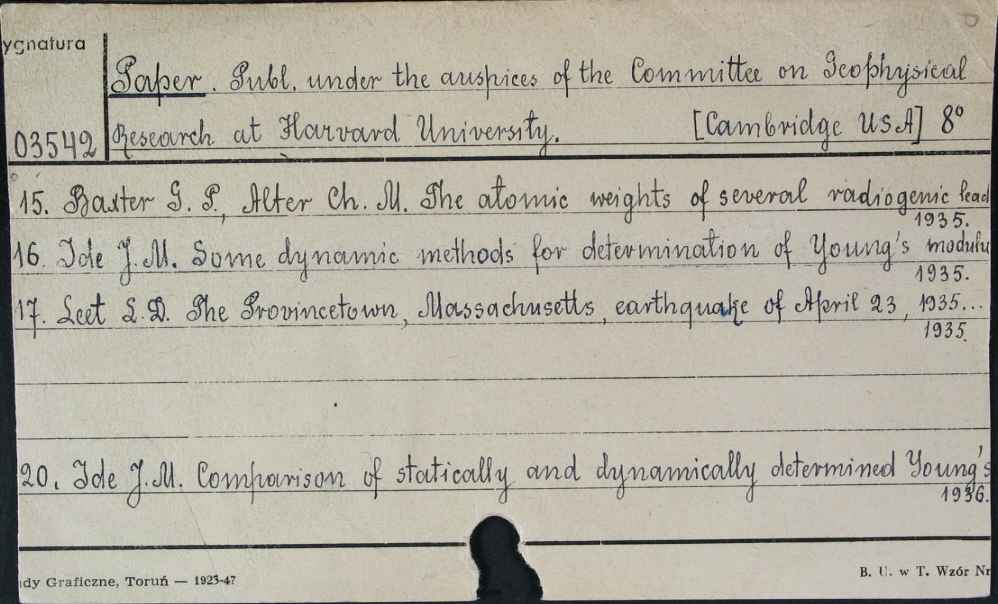 ygnatura
Paper. Publ. under the auspices of the Committee on Geophysical
03542 Research at Harvard University. [Cambridge USA] 8°
15. Baxter G. P., Alter Ch. M. The atomic weights of several radiogenic lead
1935.
16. Ide J.M. Some dynamic methods for determination of Young's modulu
1935.
17. Leet L.D. The Provincetown, Massachusetts, earthquake of April 23, 1935...
1935.
20. Ide J.M. Comparison of statically and dynamically determined Young's
1936.
dy Graficzne, Toruń — 1923-47
B. U. w T. Wzór Nr